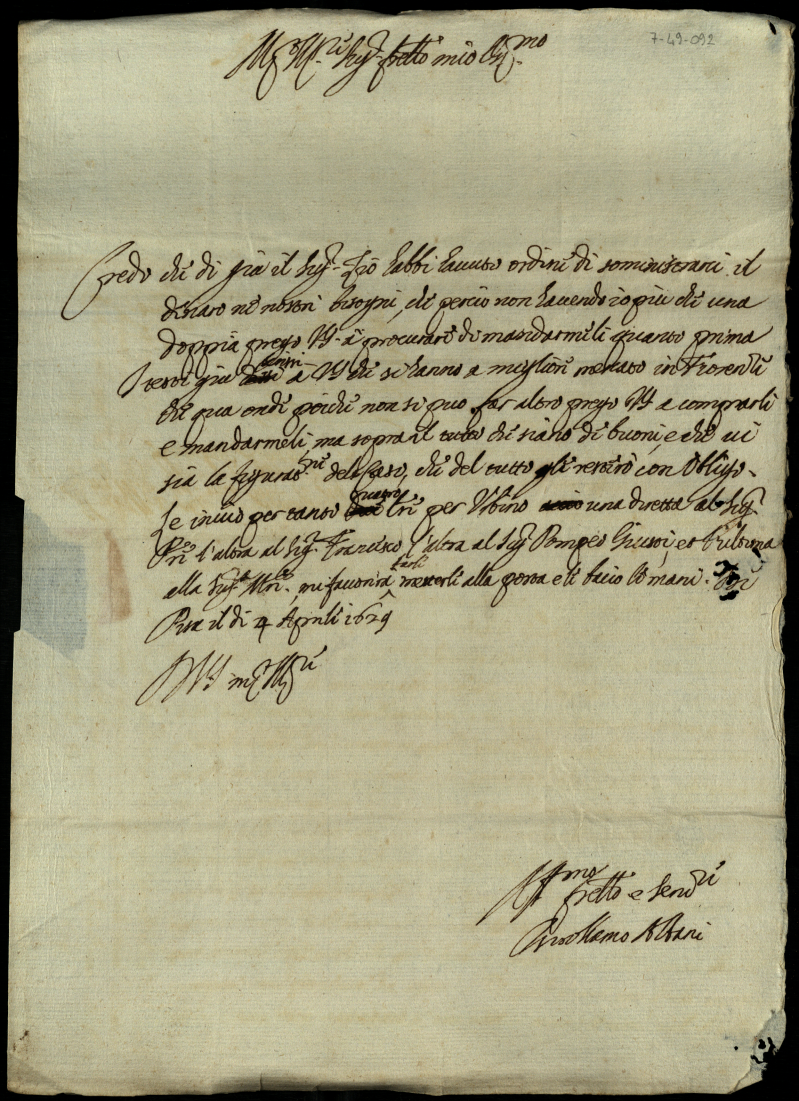 7-49-092
M.to Ill.re Sig.r fratello mio Oss.mo
Credo che di già il Sig.r Zio habbi havuto ordine di sominisrarci il
dinaro ne nostri bisogni, che perciò non havendo io più che una
doppia prego VS. à procurare di mandarmeli quanto prima
I testi già scrissi a VS che si hanno a miglior mercato in Fiorenza
che qua onde perche non si puo far altro prego VS a comprarli
e mandarmeli, ma sopra il tutto che siano di buoni, e che vi
sia la del Caso, che del tutto gli resterò con obligo.
Le invio per tanto quatro lre per Urbino una diretta al Sig.r
P.re l'altra al Sig.r Francesco, l'altra al Sig.r Pompeo et l'ultima
alla Sig.ra M.re mi favorirà farle metterle alla posta e li bacio le mani. Di
Pisa il dì 4 Aprile 1629
Di VS m.to Ill.re
Aff.mo
fratello e Ser.re
Girolamo Albani